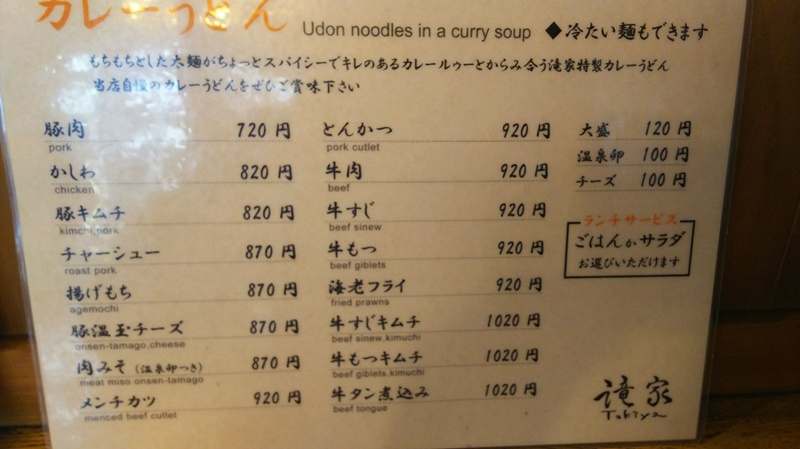 カレーうどん Udon noodles in a curry soup ◆冷たい麺もできます
もちもちとした太麺がちょっとスパイシーでキレのあるカレールゥーとからみ合う滝家特製カレーうどん
当店自慢のカレーうどんをぜひご賞味下さい
豚肉 720円
pork
かしわ 820円
chicken
豚キムチ 820円
kimchi,pork
チャーシュー 870円
roast pork
揚げもち 870円
agemochi
豚温玉チーズ 870円
onsen-tamago,cheese
肉みそ(温泉卵つき) 870円
meat miso onsen-tamago
メンチカツ 920円
menced beef cutlet
とんかつ 920円
pork cutlet
牛肉 920円
beef
牛すじ 920円
beef sinew
牛もつ 920円
beef giblets
海老フライ 920円
fried prawns
牛すじキムチ 1020円
beef sinew,kimuchi
牛もつキムチ 1020円
beef giblets,kimuchi
牛タン煮込み 1020円
beef tongue
大盛 120円
温泉卵 100円
チーズ 100円
ランチサービス
ごはんかサラダ
お選びいただけます
滝家
Takiya